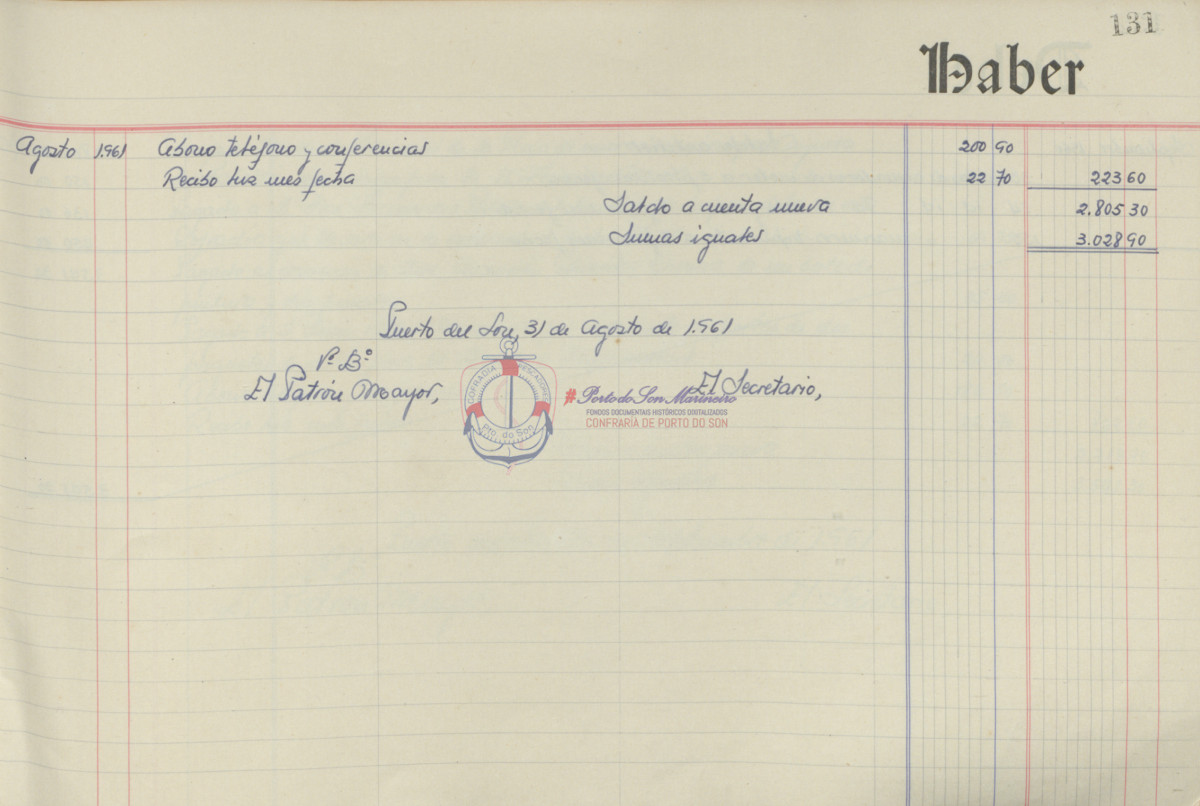 131
Haber
Agosto 1.961 Abono teléfono y conferencias 200 90
Recibo luz mes fecha 22 70 223 60
Saldo a cuenta nueva 2.805 30
Sumas iguales 3.028 90
Puerto del Son, 31 de Agosto de 1.961
Vº Bº
El Patrón Mayor, El Secretario,
COFRADIA PESCADORES
Pto. do Son
#Porto do Son Mariñeiro
FONDOS DOCUMENTAIS HISTÓRICOS DIXITALIZADOS
CONFRARIA DE PORTO DO SON